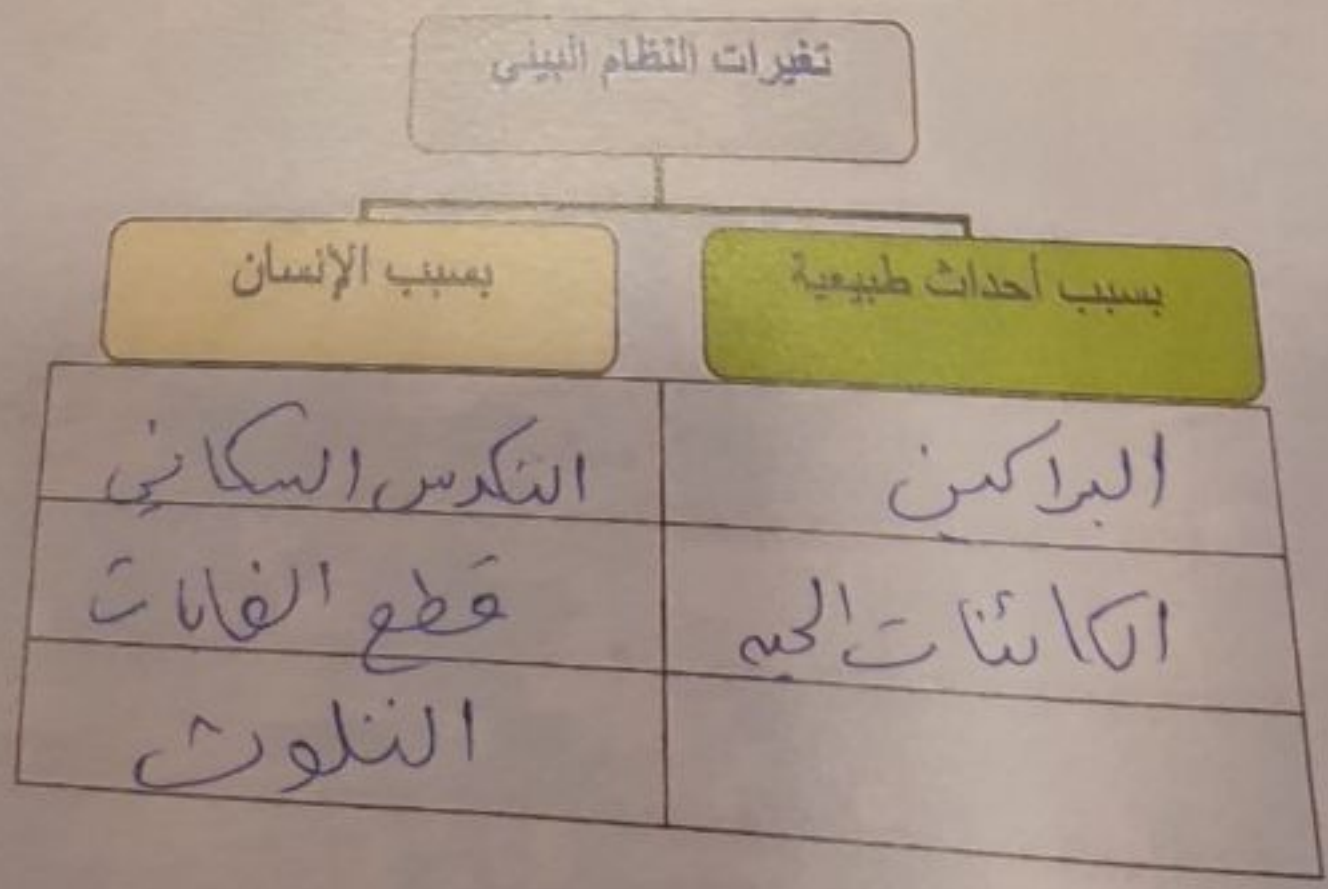 تغيرات النظام البيئي
بسبب أحداث طبيعية
بسبب الإنسان
البراكين
التكدس السكاني
الكائنات الحيه
قطع الغابات
التلوث